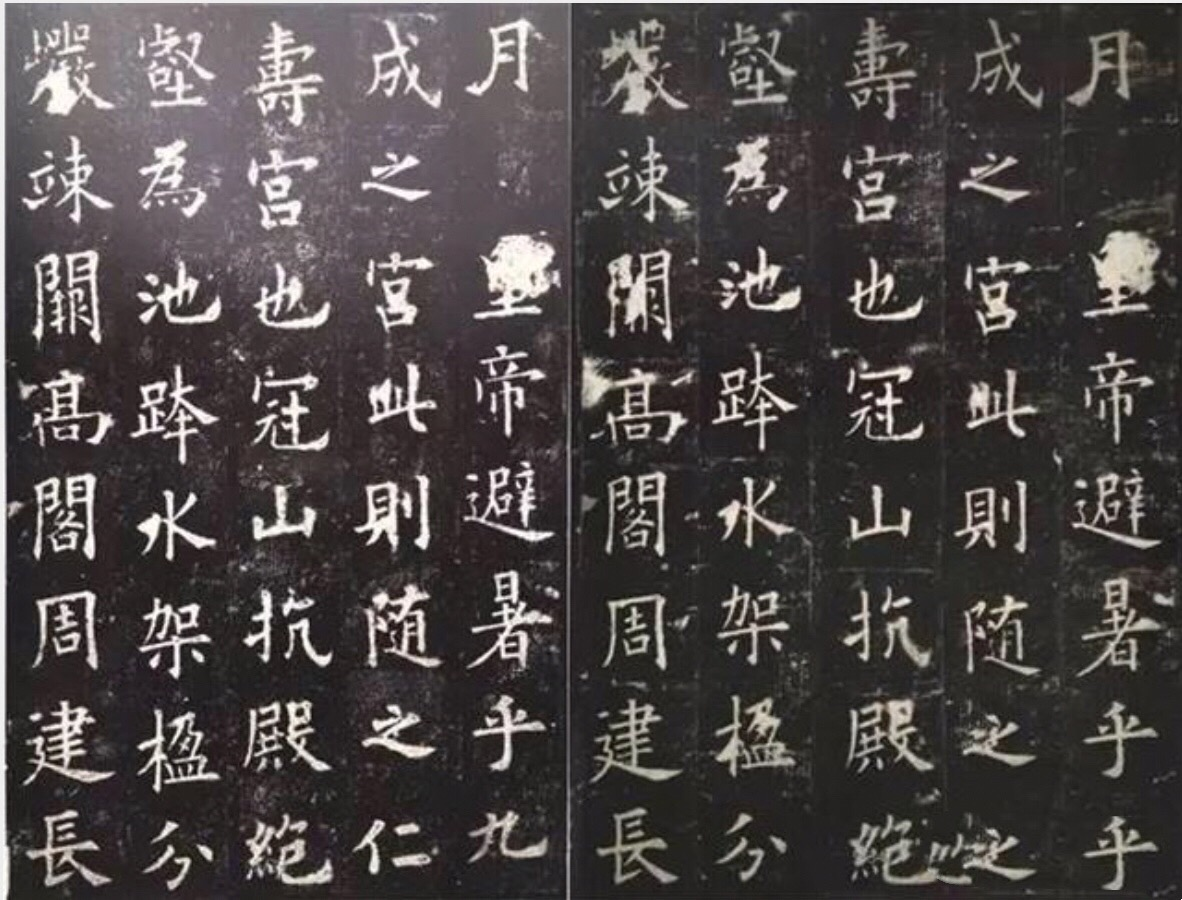 月皇帝避暑乎乎
成之宫此則随之之
壽宫也冠山抗殿絶
壑為池跨水架楹分
巖竦闕高閣周建長
月皇帝避暑乎九
成之宫此則随之仁
壽宫也冠山抗殿絶
壑為池跨水架楹分
巖竦闕高閣周建長